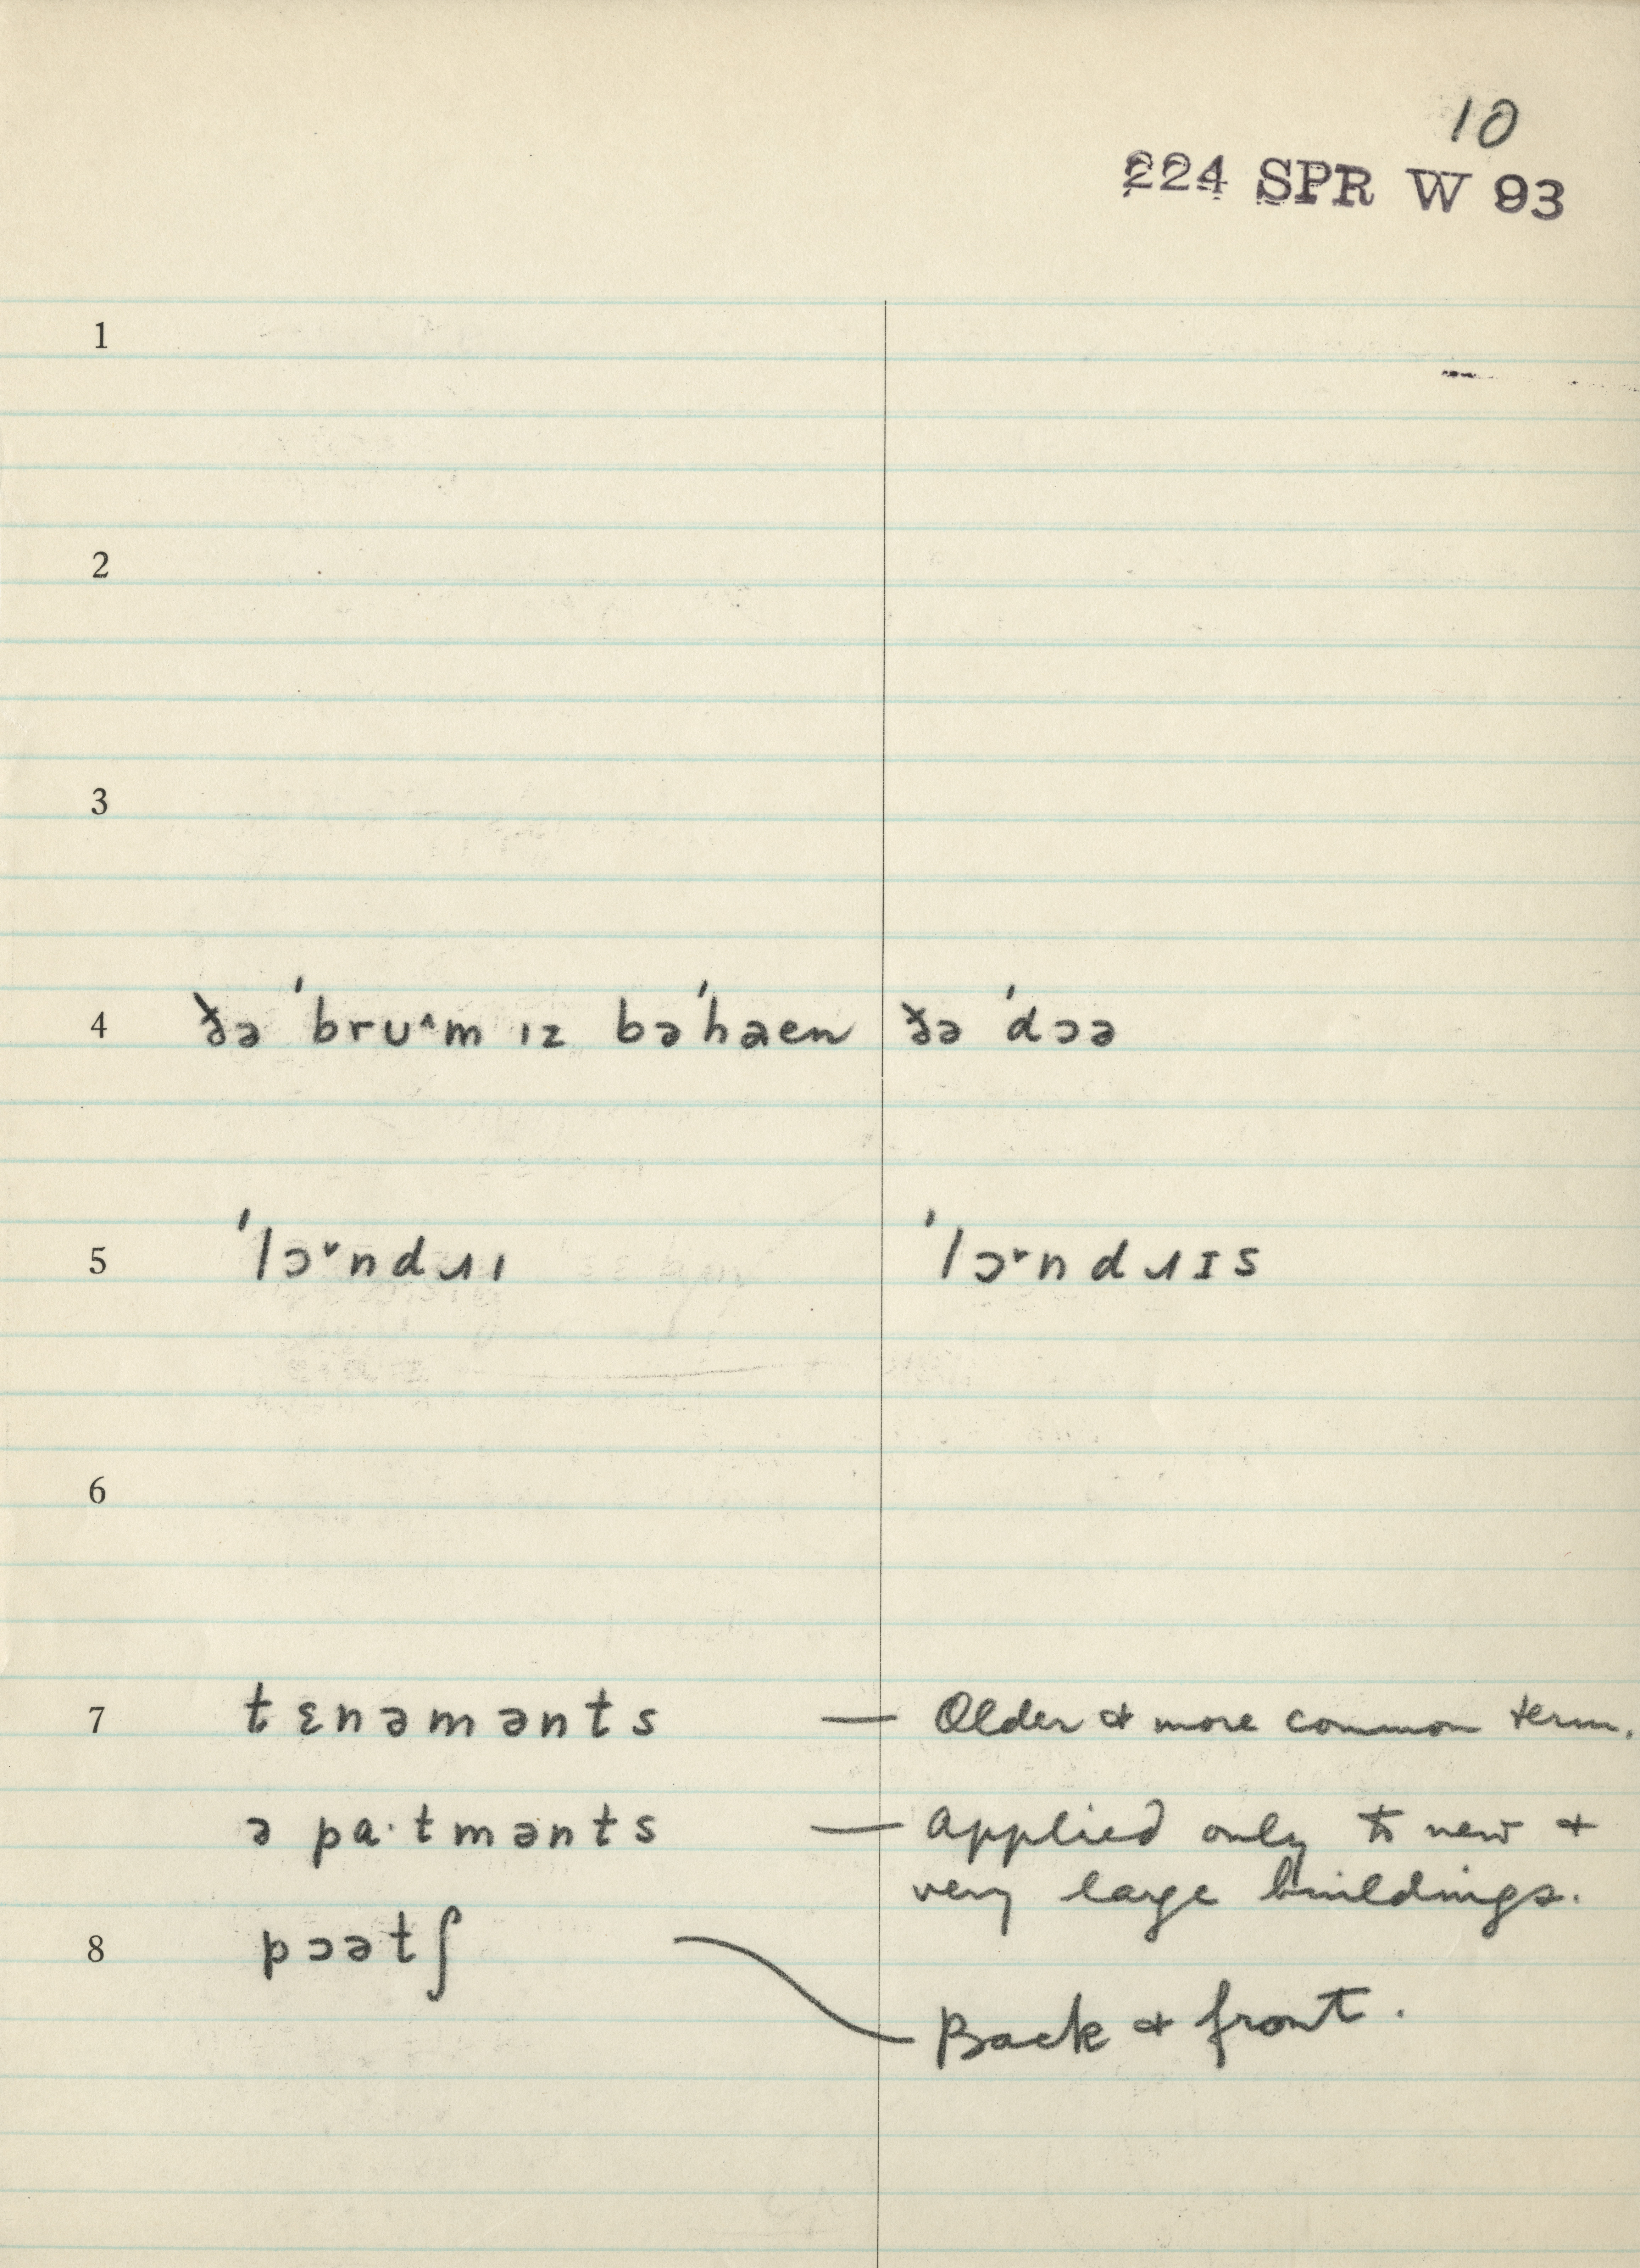 10
224 SPR W 93
1
2
3
4 ðə ˈbruˆm ɪz bəˈhaen ðə ˈdɔə
5 ˈlɔ˅ndɹɪ ˈlɔ˅ndɹɪs
6
7 tɛnəmənts — Older & more common term.
ə pa·tmənts — applied only to new &
very large buildings.
8 pɔətʃ
Back & front.